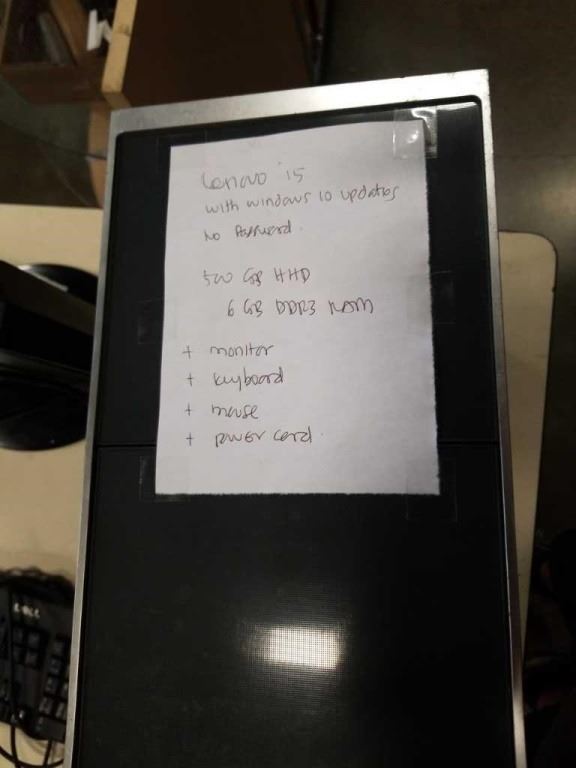 Lenovo i5
with windows 10 updates
No Password.
500 GB HHD
6 GB DDR3 RAM
+ monitor
+ keyboard
+ mouse
+ power cord.
DELL